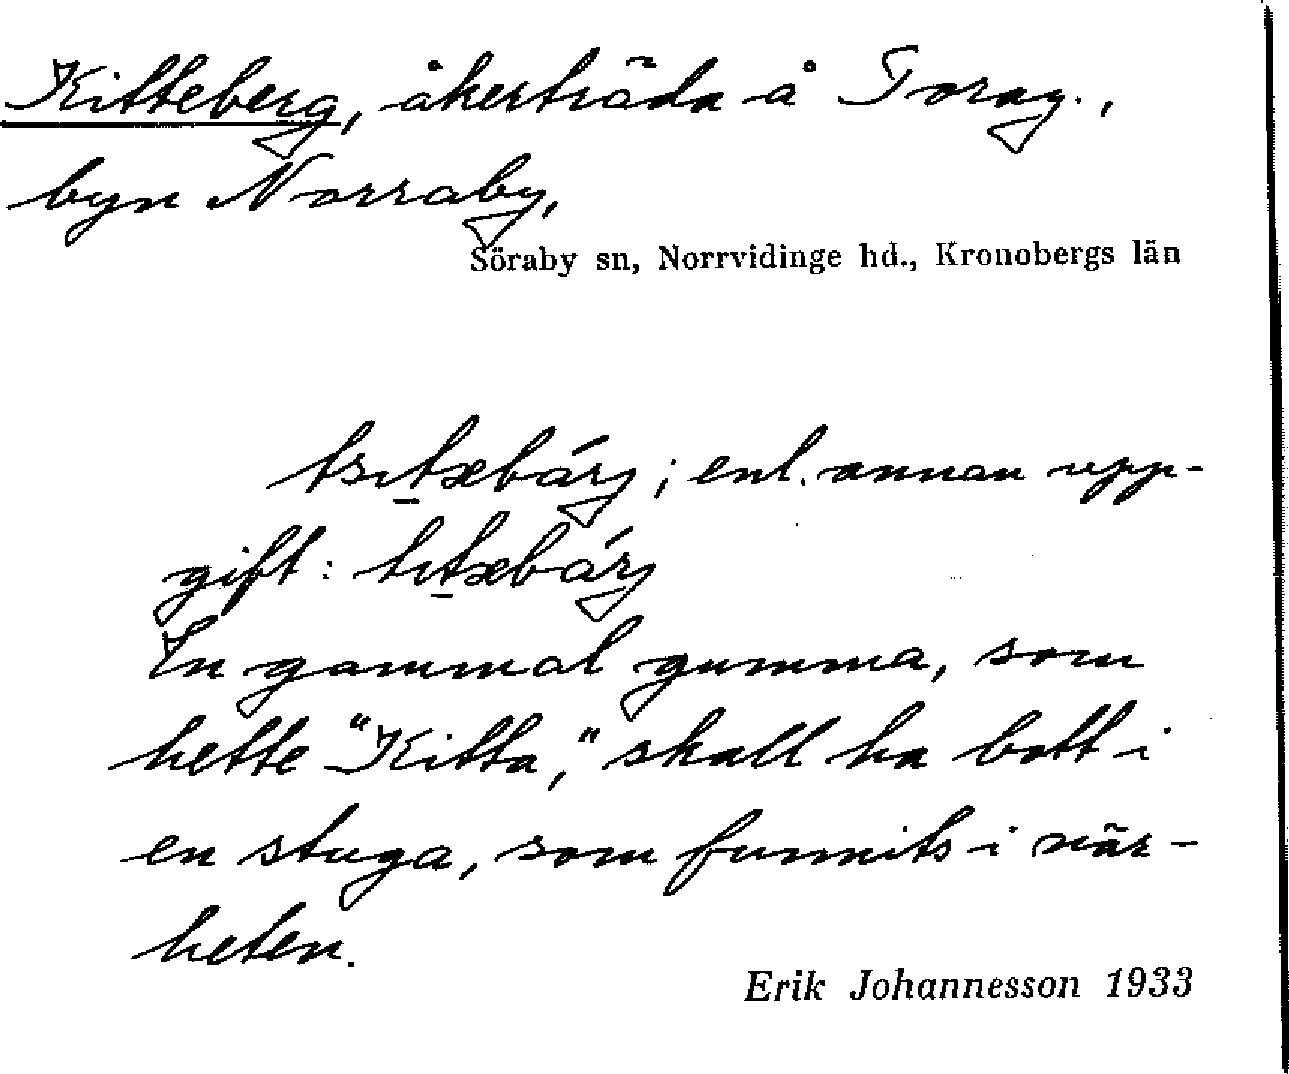 Kitteberg, åkerträda å Torag.,
byn Norraby,
Söraby sn, Norrvidinge hd., Kronobergs län
tsıt̲æbárj; enl. annan upp-
gift: tıt̲æbárj
En gammal gumma, som
hette "Kitta," skall ha bott i
en stuga, som funnits i när-
heten.
Erik Johannesson 1933